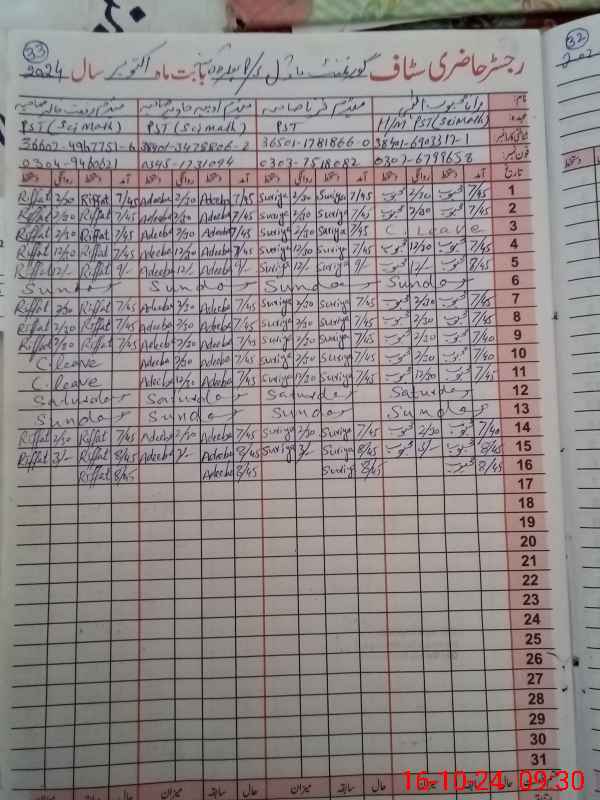 33
32
رجسٹر حاضری سٹاف گورنمنٹ ماڈل P/S بابت ماہ اکتوبر سال 2024
نام:
عہدہ: H/M PST (Sci Math) PST PST (Sci math) PST (Sci Math)
شناختی کارڈ نمبر 38401-6903317-1 36501-1781866-0 38401-3478806-2
فون نمبر: 0307-6799658 0303-7518082 0345-1731094 0304-9460621
تاریخ آمد دستخط روانگی دستخط آمد دستخط روانگی دستخط آمد دستخط روانگی دستخط آمد دستخط روانگی دستخط
1 7/45 محبوب 2/30 محبوب 7/45 Suriya 2/30 Suriya 7/45 Adeeba 2/30 Adeeba 7/45 Riffat 2/30 Riffat
2 7/45 محبوب 2/30 محبوب 7/45 Suriya 2/30 Suriya 7/45 Adeeba 2/30 Adeeba 7/45 Riffat 2/30 Riffat
3 C. Leave 7/45 Suriya 2/30 Suriya 7/45 Adeeba 2/30 Adeeba 7/45 Riffat 2/30 Riffat
4 7/45 محبوب 12/30 محبوب 7/45 Suriya 12/30 Suriya 7/45 Adeeba 12/30 Adeeba 7/45 Riffat 12/30 Riffat
5 8/45 محبوب 12/- محبوب 9/- Suriya 12/- Suriya 9/- Adeeba 12/- Adeeba 9/- Riffat 12/- Riffat
6 Sunday Sunday Sunday Sunday
7 7/45 محبوب 2/30 محبوب 7/45 Suriya 2/30 Suriya 7/45 Adeeba 2/30 Adeeba 7/45 Riffat 2/30 Riffat
8 7/45 محبوب 2/30 محبوب 7/45 Suriya 2/30 Suriya 7/45 Adeeba 2/30 Adeeba 7/45 Riffat 2/30 Riffat
9 7/40 محبوب 2/30 محبوب 7/45 Suriya 2/30 Suriya 7/45 Adeeba 2/30 Adeeba 7/45 Riffat 2/30 Riffat
10 7/40 محبوب 2/30 محبوب 7/45 Suriya 2/30 Suriya 7/45 Adeeba 2/30 Adeeba C. leave
11 7/45 محبوب 12/30 محبوب 7/45 Suriya 12/30 Suriya 7/45 Adeeba 12/30 Adeeba C. leave
12 Saturday Saturday Saturday Saturday
13 Sunday Sunday Sunday Sunday
14 7/40 محبوب 2/30 محبوب 7/45 Suriya 2/30 Suriya 7/45 Adeeba 2/30 Adeeba 7/45 Riffat 2/30 Riffat
15 8/45 محبوب 3/- محبوب 8/45 Suriya 3/- Suriya 8/45 Adeeba 3/- Adeeba 8/45 Riffat 3/- Riffat
16 8/45 محبوب 8/45 Suriya 8/45 Adeeba 8/45 Riffat
17
18
19
20
21
22
23
24
25
26
27
28
29
30
31
حال سابقہ میزان حال سابقہ میزان حال سابقہ میزان حال سابقہ میزان
16-10-24 09:30